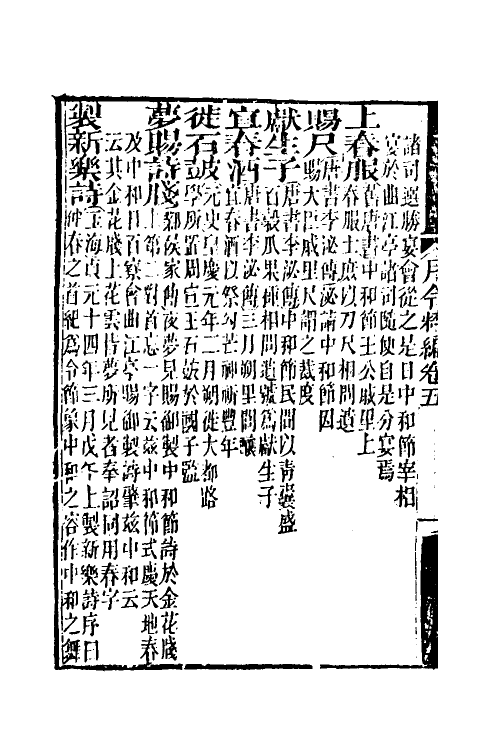 諸司選勝宴會從之是日中和節宰相
宴於曲江亭諸司隨便自是分宴焉
上春服舊唐書中和節王公戚里上
春服士庶以刀尺相問遺
賜尺唐書李泌傳泌請中和節因
賜大臣戚里尺謂之裁度
獻生子唐書李泌傳中和節民間以青囊盛
百穀瓜果種相問遺號為獻生子
宜春酒唐書李泌傳三月朔里閭釀
宜春酒以祭勾芒神祈豐年
徙石鼓元史皇慶元年二月朔徙大都路
學所置周宣王石鼓於國子監
夢賜詩牋鄴侯家傳夜夢見賜御製中和節詩於金花牋
上第二對首忘一字云茲中和節式慶天地春
及中和日百寮會曲江亭賜御製詩肇茲中和云
云其金花牋上花雲皆夢所見者奉詔同用春字
製新樂詩玉海貞元十四年三月戊午上製新樂詩序曰
仲春之首紀為令節象中和之容作中和之舞
月令粹編卷五